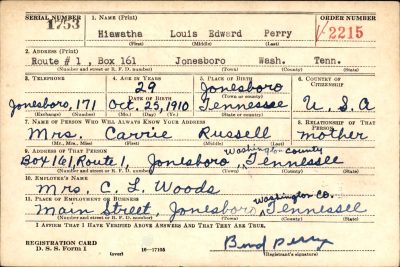 SERIAL NUMBER 1. NAME (Print) ORDER NUMBER
1753 Hiawatha Louis Edward Perry V-2215
(First) (Middle) (Last)
2. ADDRESS (Print)
Route # 1 , Box 161 Jonesboro Wash. Tenn.
(Number and street or R. F. D. number) (Town) (County) (State)
3. TELEPHONE 4. AGE IN YEARS 5. PLACE OF BIRTH 6. COUNTRY OF CITIZENSHIP
29 Jonesboro
DATE OF BIRTH (Town or county)
Jonesboro, 171 Oct. 25, 1910 Tennessee U. S. A
(Exchange) (Number) (Mo.) (Day) (Yr.) (State or country)
7. NAME OF PERSON WHO WILL ALWAYS KNOW YOUR ADDRESS 8. RELATIONSHIP OF THAT PERSON
Mrs. Carrie Russell mother
(Mr., Mrs., Miss) (First) (Middle) (Last)
9. ADDRESS OF THAT PERSON Washington County
Box 161, Route 1, Jonesboro, Tennessee
(Number and street or R. F. D. number) (Town) (County) (State)
10. EMPLOYER'S NAME
Mrs. C. L. Woods
11. PLACE OF EMPLOYMENT OR BUSINESS Washington Co.
Main Street, Jonesboro, Tennessee
(Number and street or R. F. D. number) (Town) (County) (State)
I AFFIRM THAT I HAVE VERIFIED ABOVE ANSWERS AND THAT THEY ARE TRUE.
REGISTRATION CARD
D. S. S. Form 1 (over) 16—17105 Perry
(Registrant's signature)